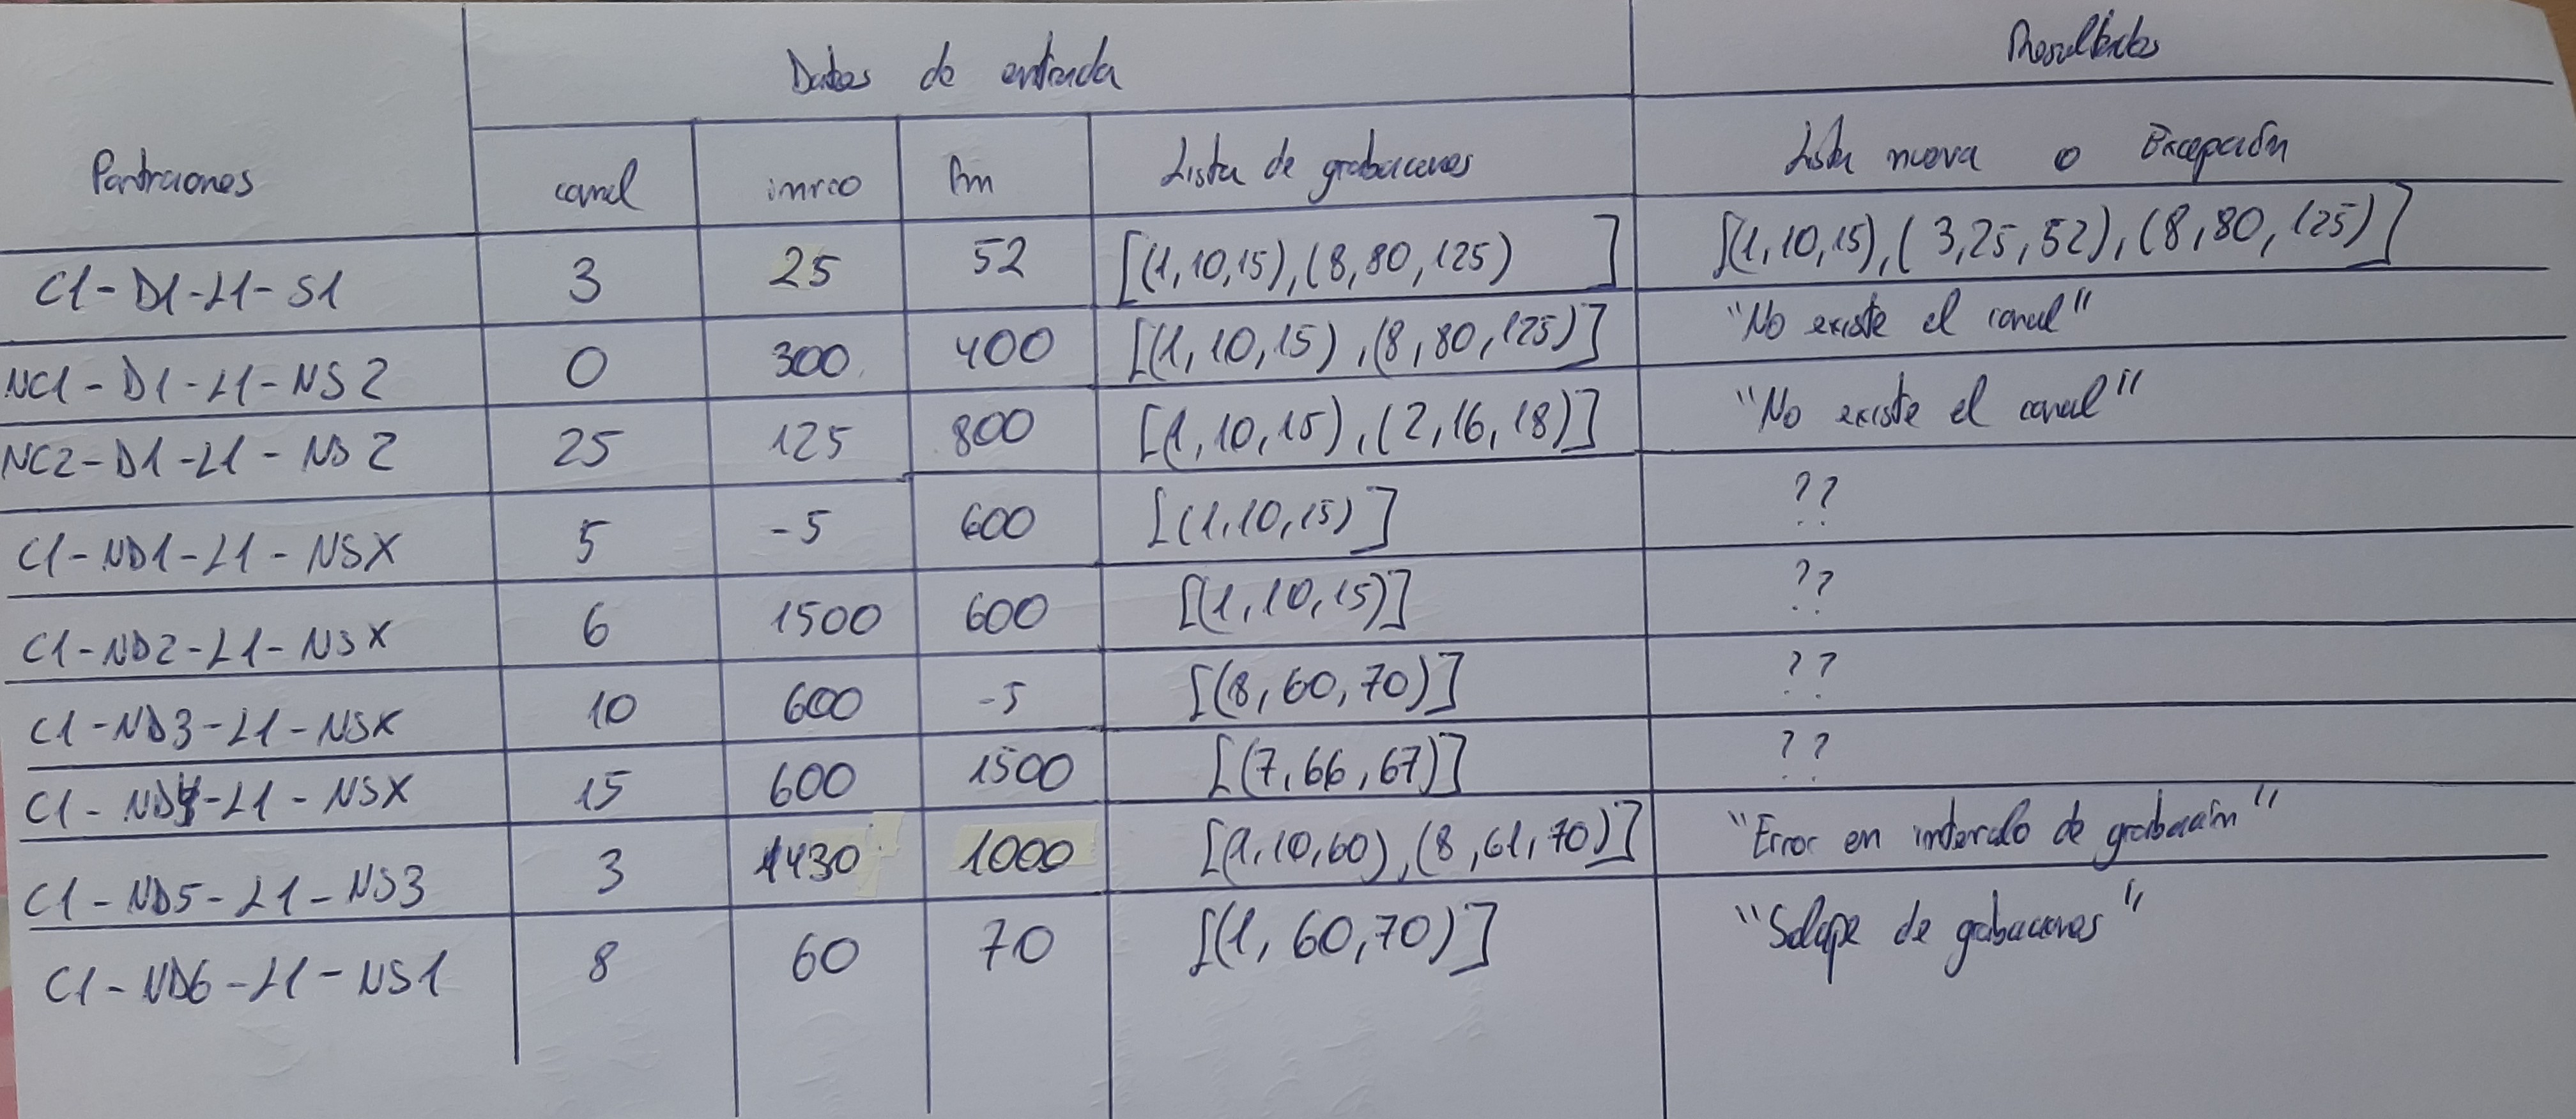 Datos de entrada Resultados
Particiones canal inicio fin Lista de grabaciones Lista nueva o Excepción
C1-D1-L1-S1 3 25 52 [(1,10,15),(8,80,125) ] [(1,10,15),(3,25,52),(8,80,125)]
NC1-D1-L1-NS2 0 300 400 [(1,10,15),(8,80,125)] "No existe el canal"
NC2-D1-L1-NS2 25 125 800 [(1,10,15),(2,16,18)] "No existe el canal"
C1-ND1-L1-NSX 5 -5 600 [(1,10,15)] ??
C1-ND2-L1-NSX 6 1500 600 [(1,10,15)] ??
C1-ND3-L1-NSX 10 600 -5 [(8,60,70)] ??
C1-ND4-L1-NSX 15 600 1500 [(7,66,67)] ??
C1-ND5-L1-NS3 3 1430 1000 [(1,10,60),(8,61,70)] "Error en intervalo de grabación"
C1-ND6-L1-NS1 8 60 70 [(1,60,70)] "Solape de grabaciones"